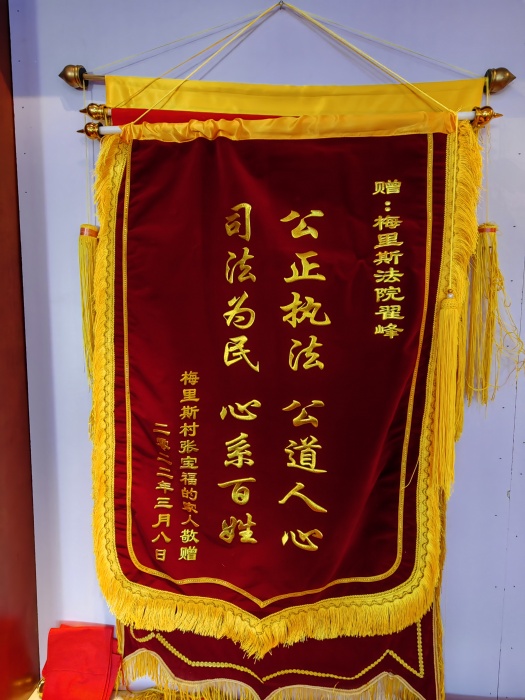 赠：梅里斯法院翟峰
公正执法 公道人心
司法为民 心系百姓
梅里斯村张宝福的家人敬赠
二零二二年三月八日